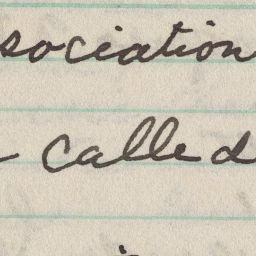 sociation
called